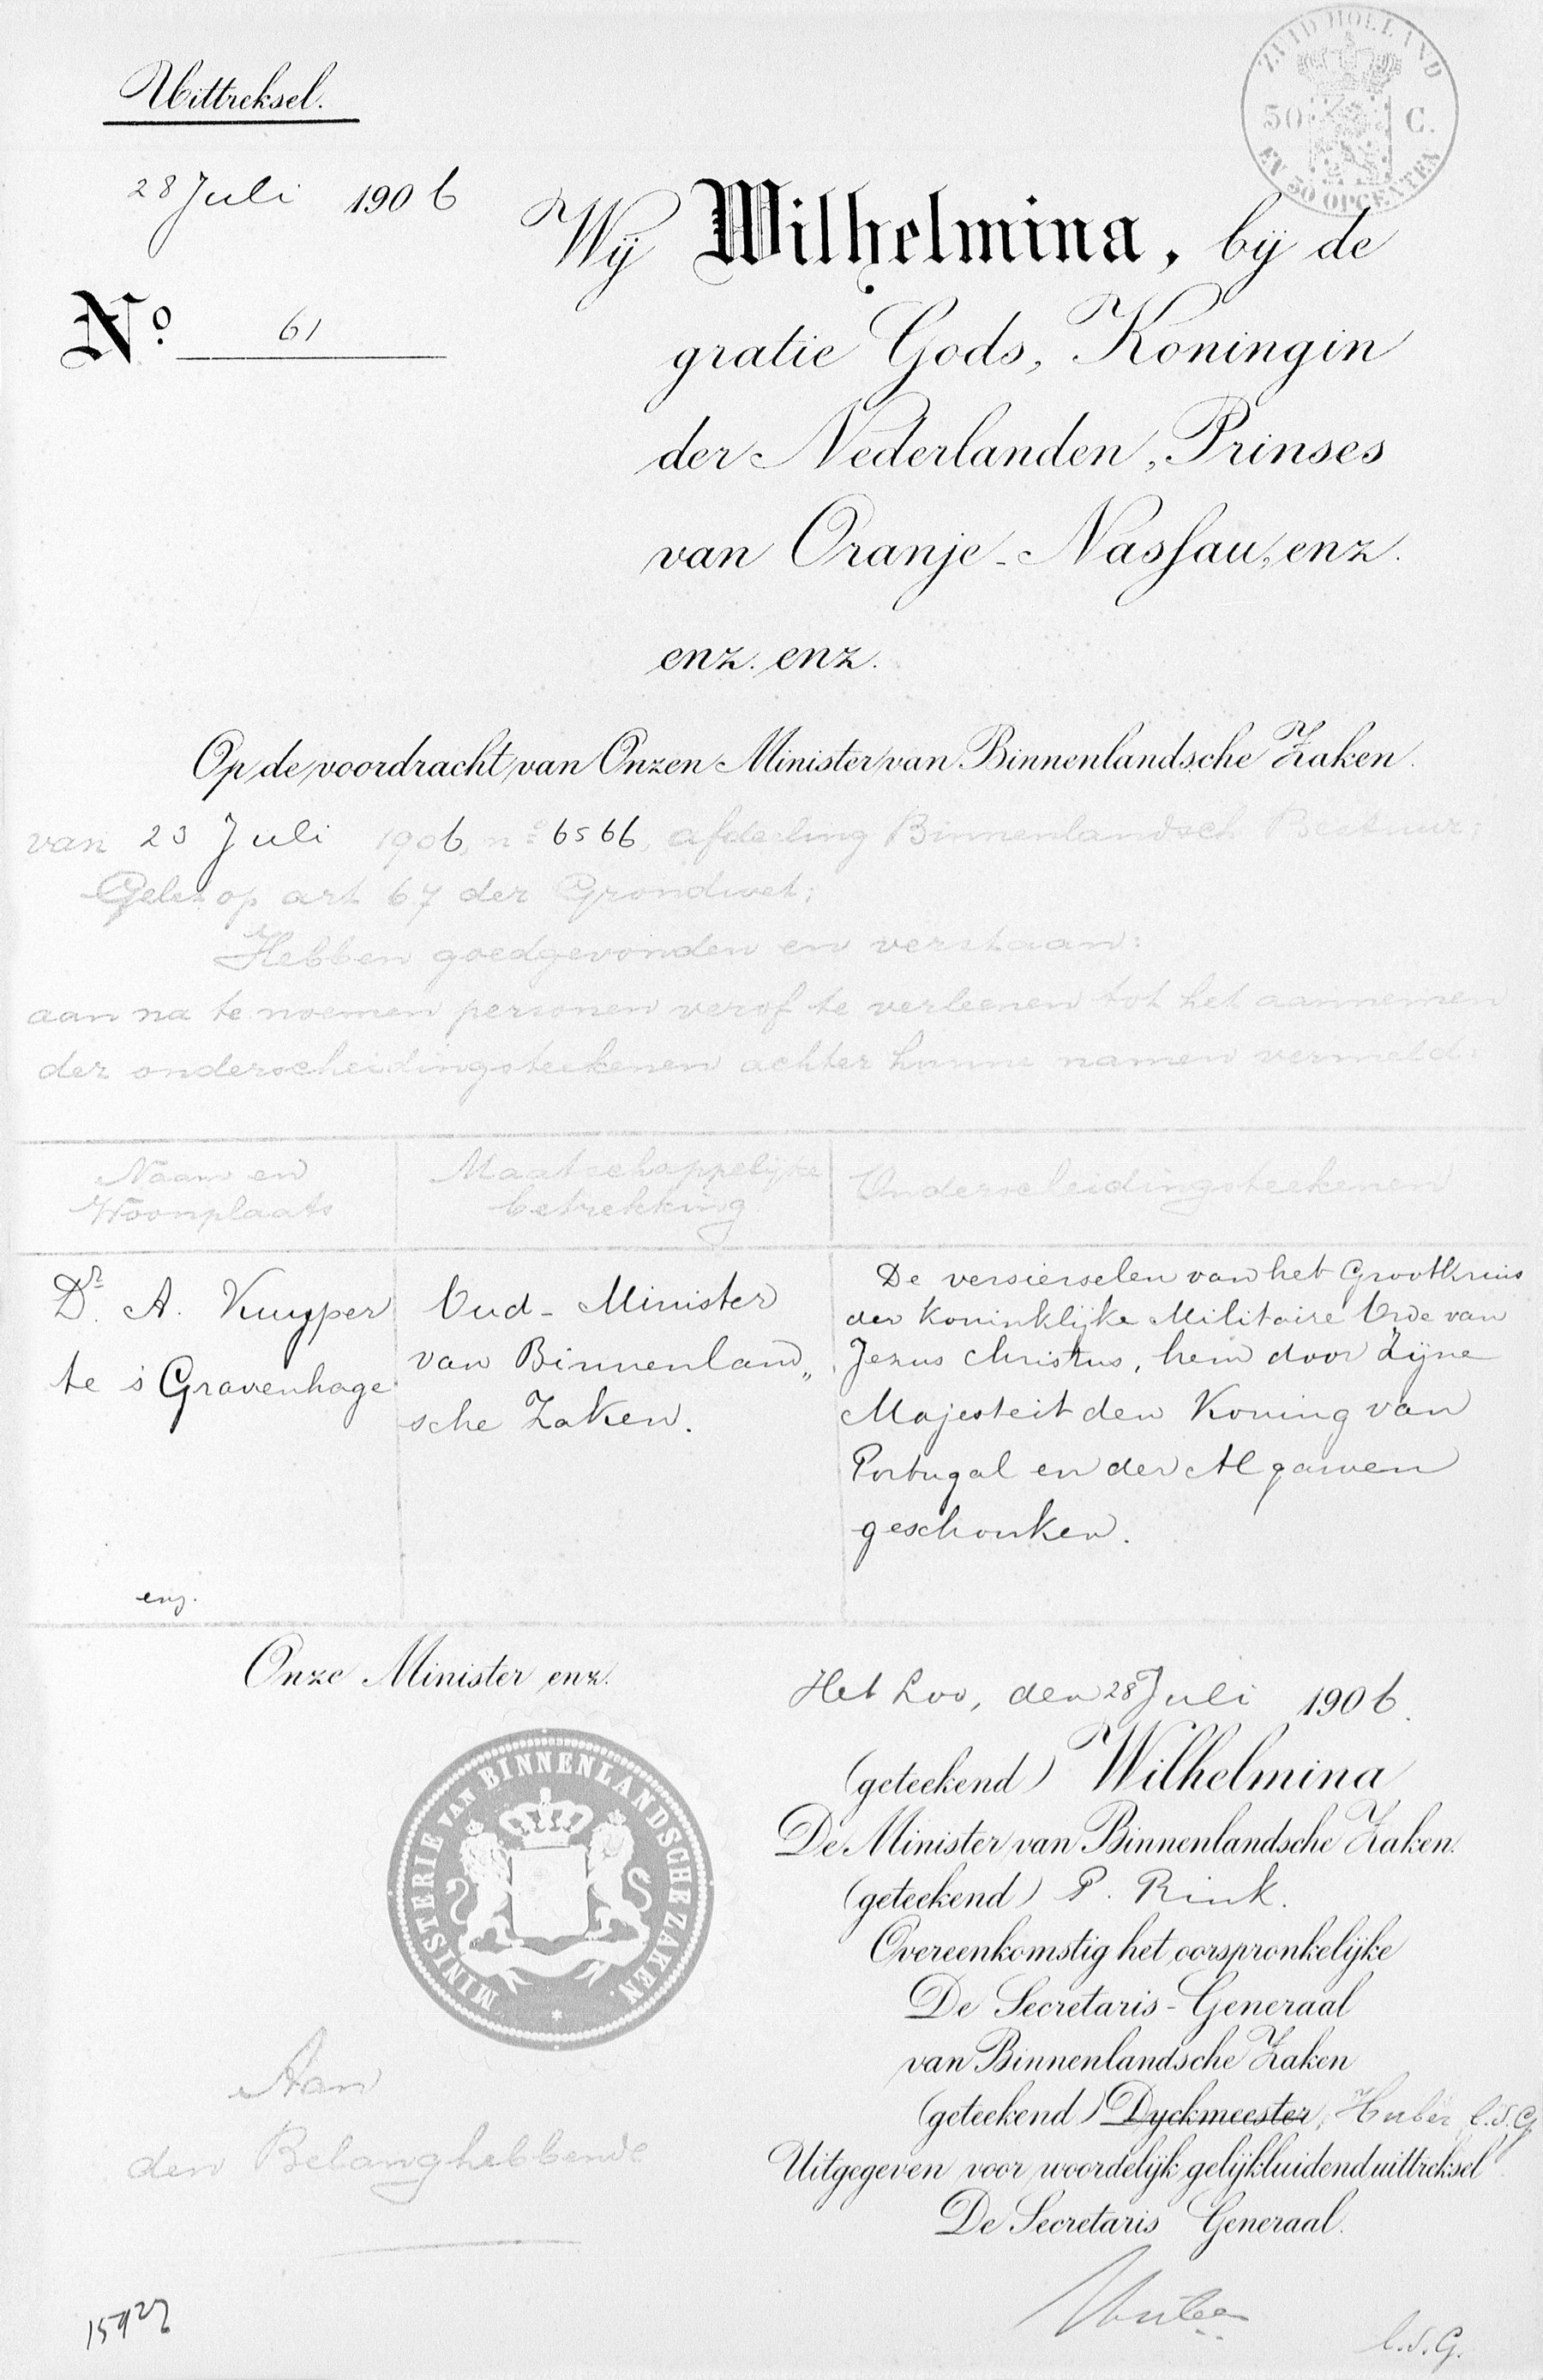 Uittreksel.
ZUID HOLLAND
50 C.
EN 50 OPCENTEN
28 Juli 1906
No. 61
Wij Wilhelmina, bij de
gratie Gods, Koningin
der Nederlanden, Prinses
van Oranje-Nassau, enz.
enz. enz.
Op de voordracht van Onzen Minister van Binnenlandsche Zaken.
van 23 Juli 1906, no 6566, afdeeling Binnenlandsch Bestuur;
Gelet op art 67 der Grondwet;
Hebben goedgevonden en verstaan:
aan na te noemen personen verlof te verleenen tot het aannemen
der onderscheidingsteekenen achter hunne namen vermeld:
Naam en
Woonplaats
Maatschappelijke
betrekking
Onderscheidingsteekenen
Dr. A. Kuyper
te 's Gravenhage
Oud-Minister
van Binnenland„
sche Zaken.
De versierselen van het Grootkruis
der Koninklijke Militaire Orde van
Jezus Christus, hem door Zijne
Majesteit den Koning van
Portugal en der Algarven
geschonken.
enz.
Onze Minister enz.
Het Loo, den 28 Juli 1906.
(geteekend) Wilhelmina
De Minister van Binnenlandsche Zaken.
(geteekend) P. Rink.
Overeenkomstig het oorspronkelijke
De Secretaris-Generaal
van Binnenlandsche Zaken
(geteekend) Dyckmeester, Huber l.S.G.
Uitgegeven voor woordelijk gelijkluidend uittreksel.
De Secretaris Generaal.
Huber
l.S.G.
MINISTERIE VAN BINNENLANDSCHE ZAKEN.
Aan
den Belanghebbende